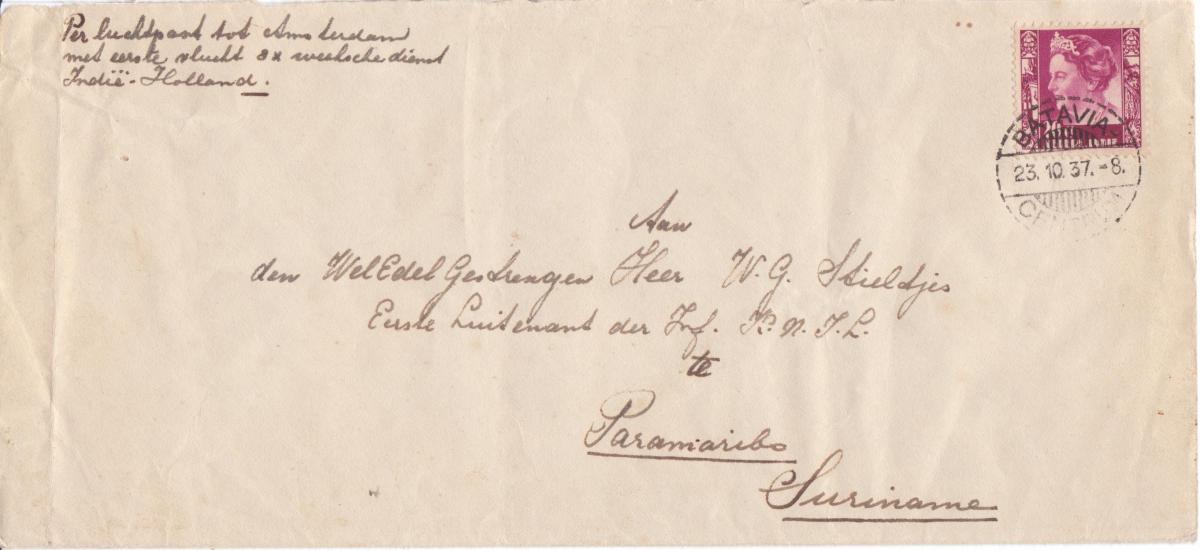 Per luchtpost tot Amsterdam
met eerste vlucht 3x weeksche dienst
Indië-Holland.
BATAVIA
23.10.37.-8.
Aan
den WelEdelGestrengen Heer W.G. Stieltjes
Eerste Luitenant der Inf. K.N.I.L.
te
Paramaribo
Suriname